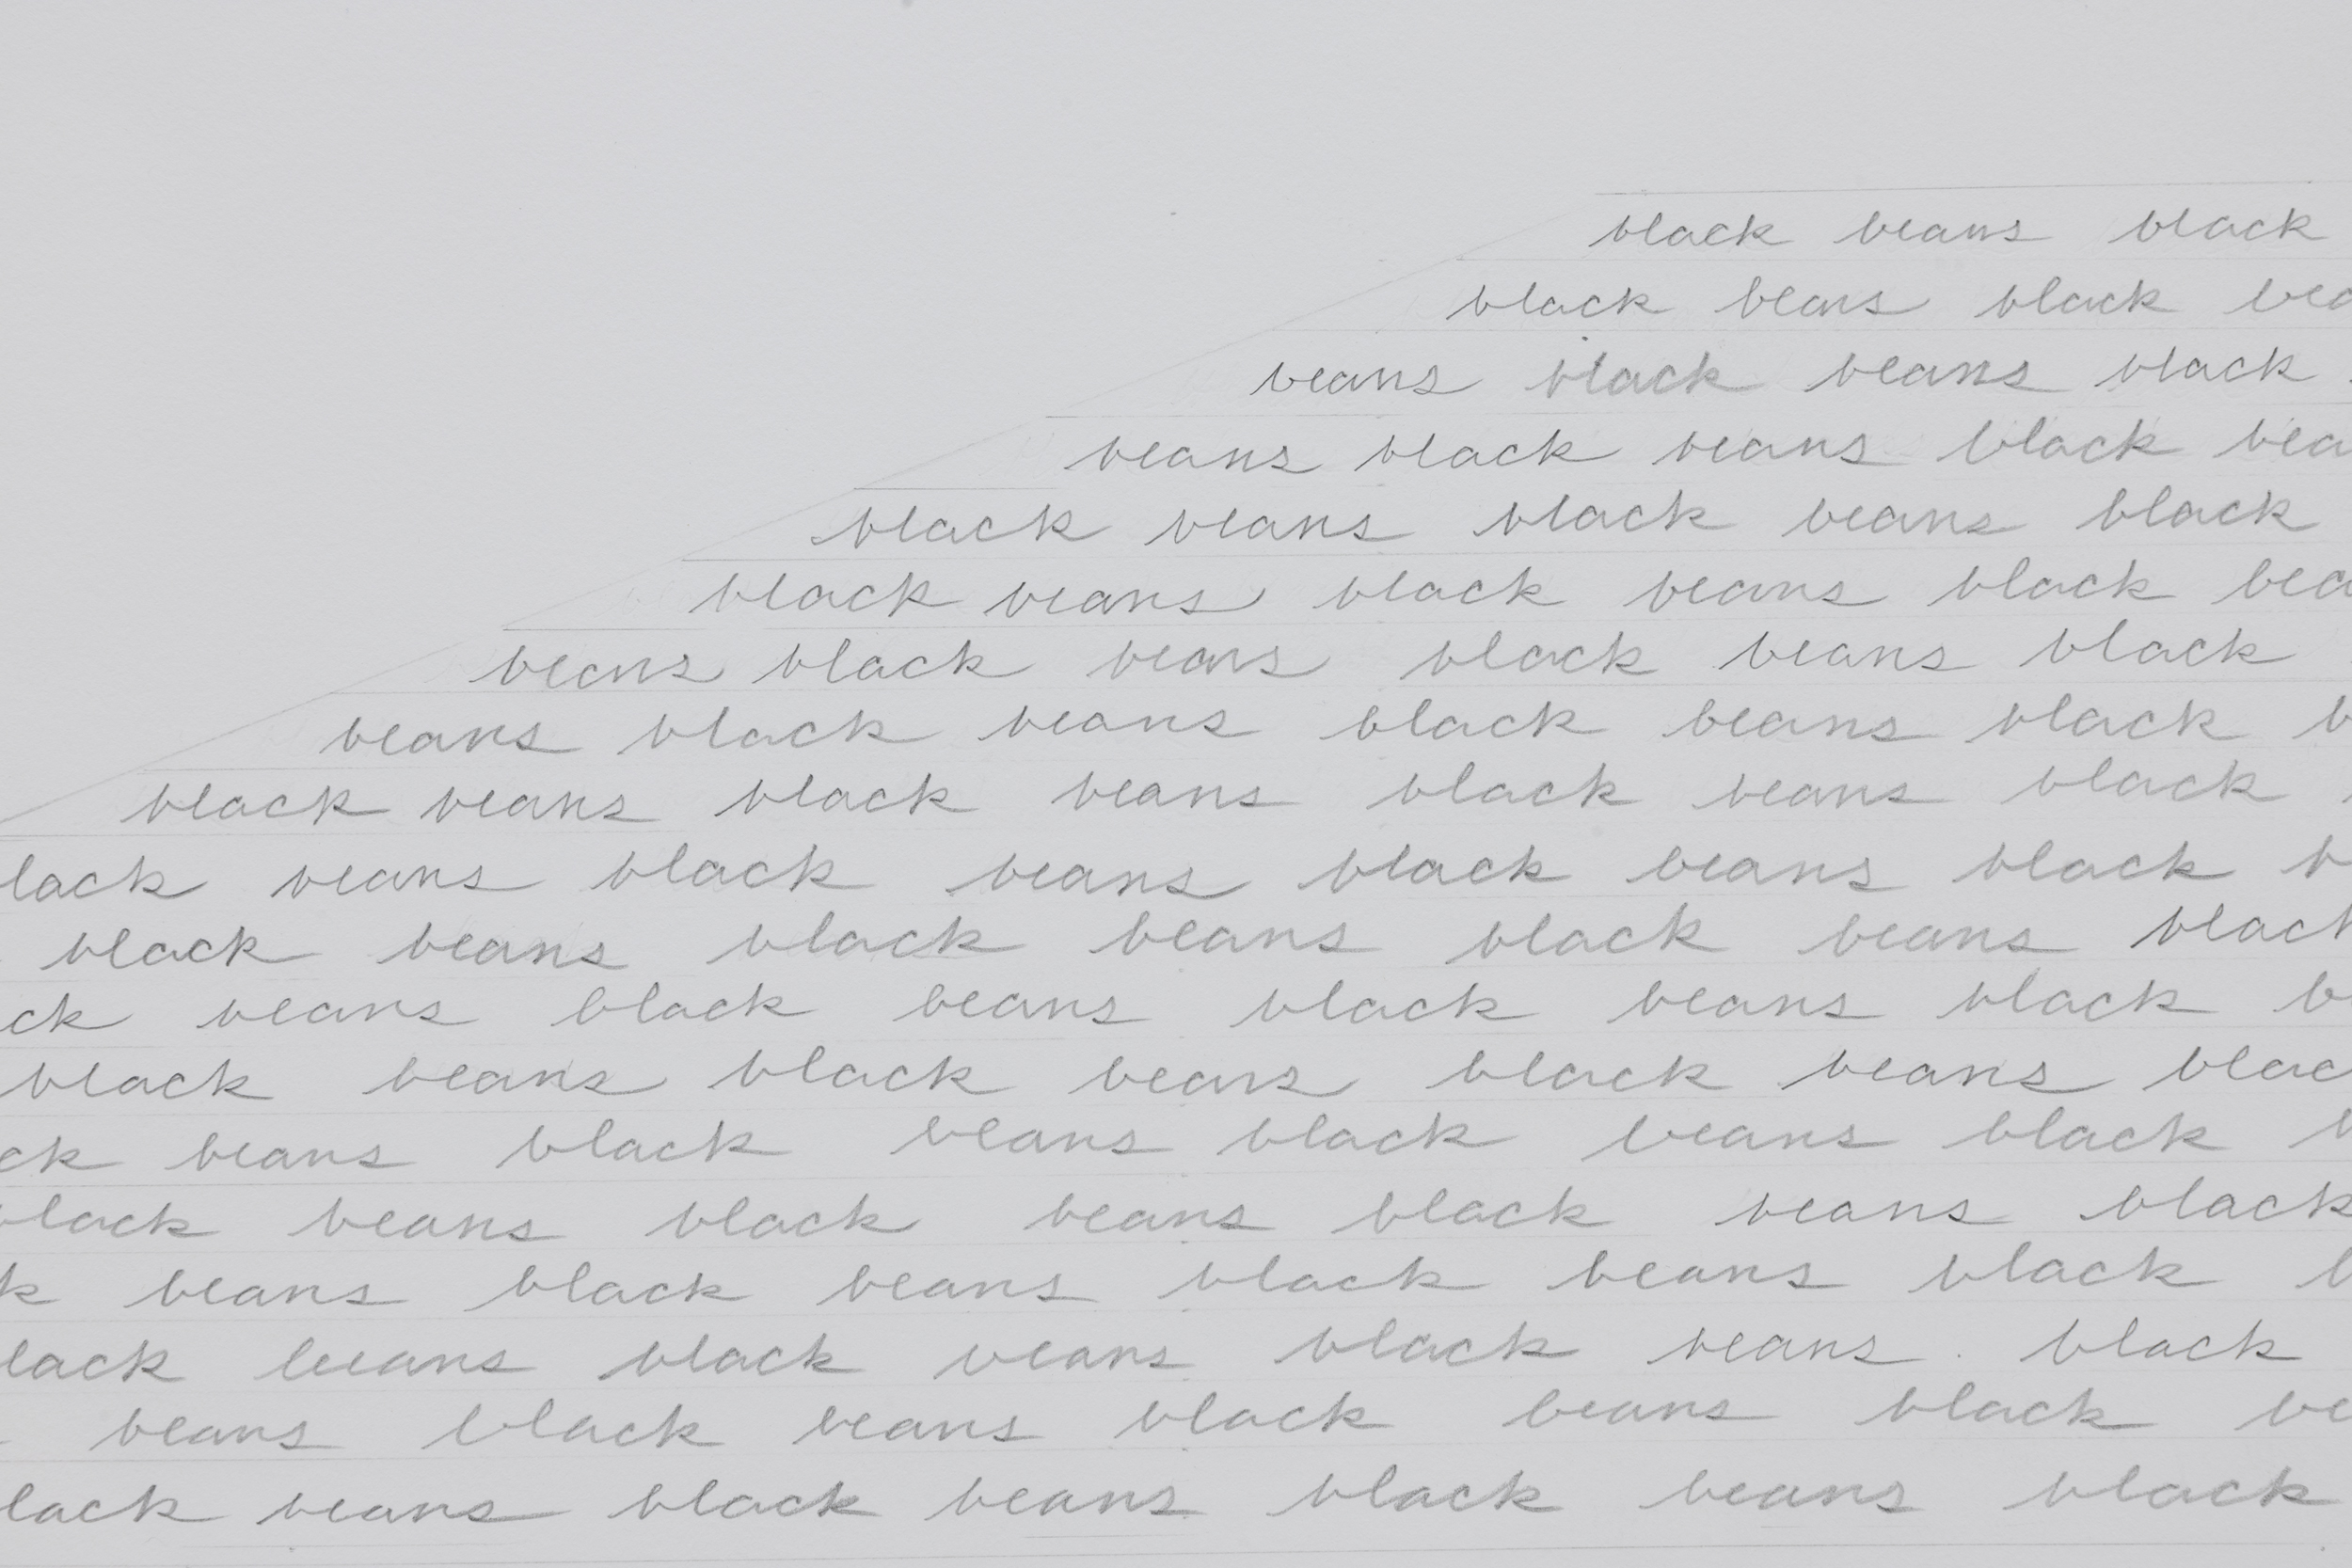 black beans black
black beans black bea
beans black beans black
beans black beans black bea
black beans black beans black
black beans black beans black bea
beans black beans black beans black
beans black beans black beans black b
black beans black beans black beans black
lack beans black beans black beans black b
black beans black beans black beans black
ck beans black beans black beans black be
black beans black beans black beans blac
ck beans black beans black beans black b
black beans black beans black beans black
k beans black beans black beans black b
lack beans black beans black beans black
beans black beans black beans black be
lack beans black beans black beans black